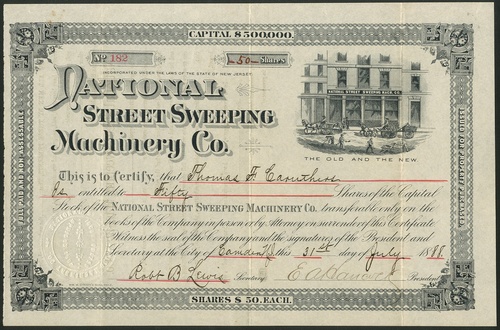 CAPITAL $500,000.
No 182
50 Shares
INCORPORATED UNDER THE LAWS OF THE STATE OF NEW JERSEY
NATIONAL
STREET SWEEPING
Machinery Co.
NATIONAL STREET SWEEPING MACH. CO.
THE OLD AND THE NEW
This is to Certify, that Thomas F. Caruthers
is entitled to Fifty Shares of the Capital
Stock of the NATIONAL STREET SWEEPING MACHINERY CO. transferable only on the
books of the Company in person or by Attorney on surrender of this Certificate
Witness the seal of the Company and the signatures of the President and
Secretary at the City of Camden NJ this 31st day of July 1898
Robt B Lewis Secretary President
SHARES $50. EACH.
FULL PAID AND NON-ASSESSABLE
FULL PAID AND NON-ASSESSABLE